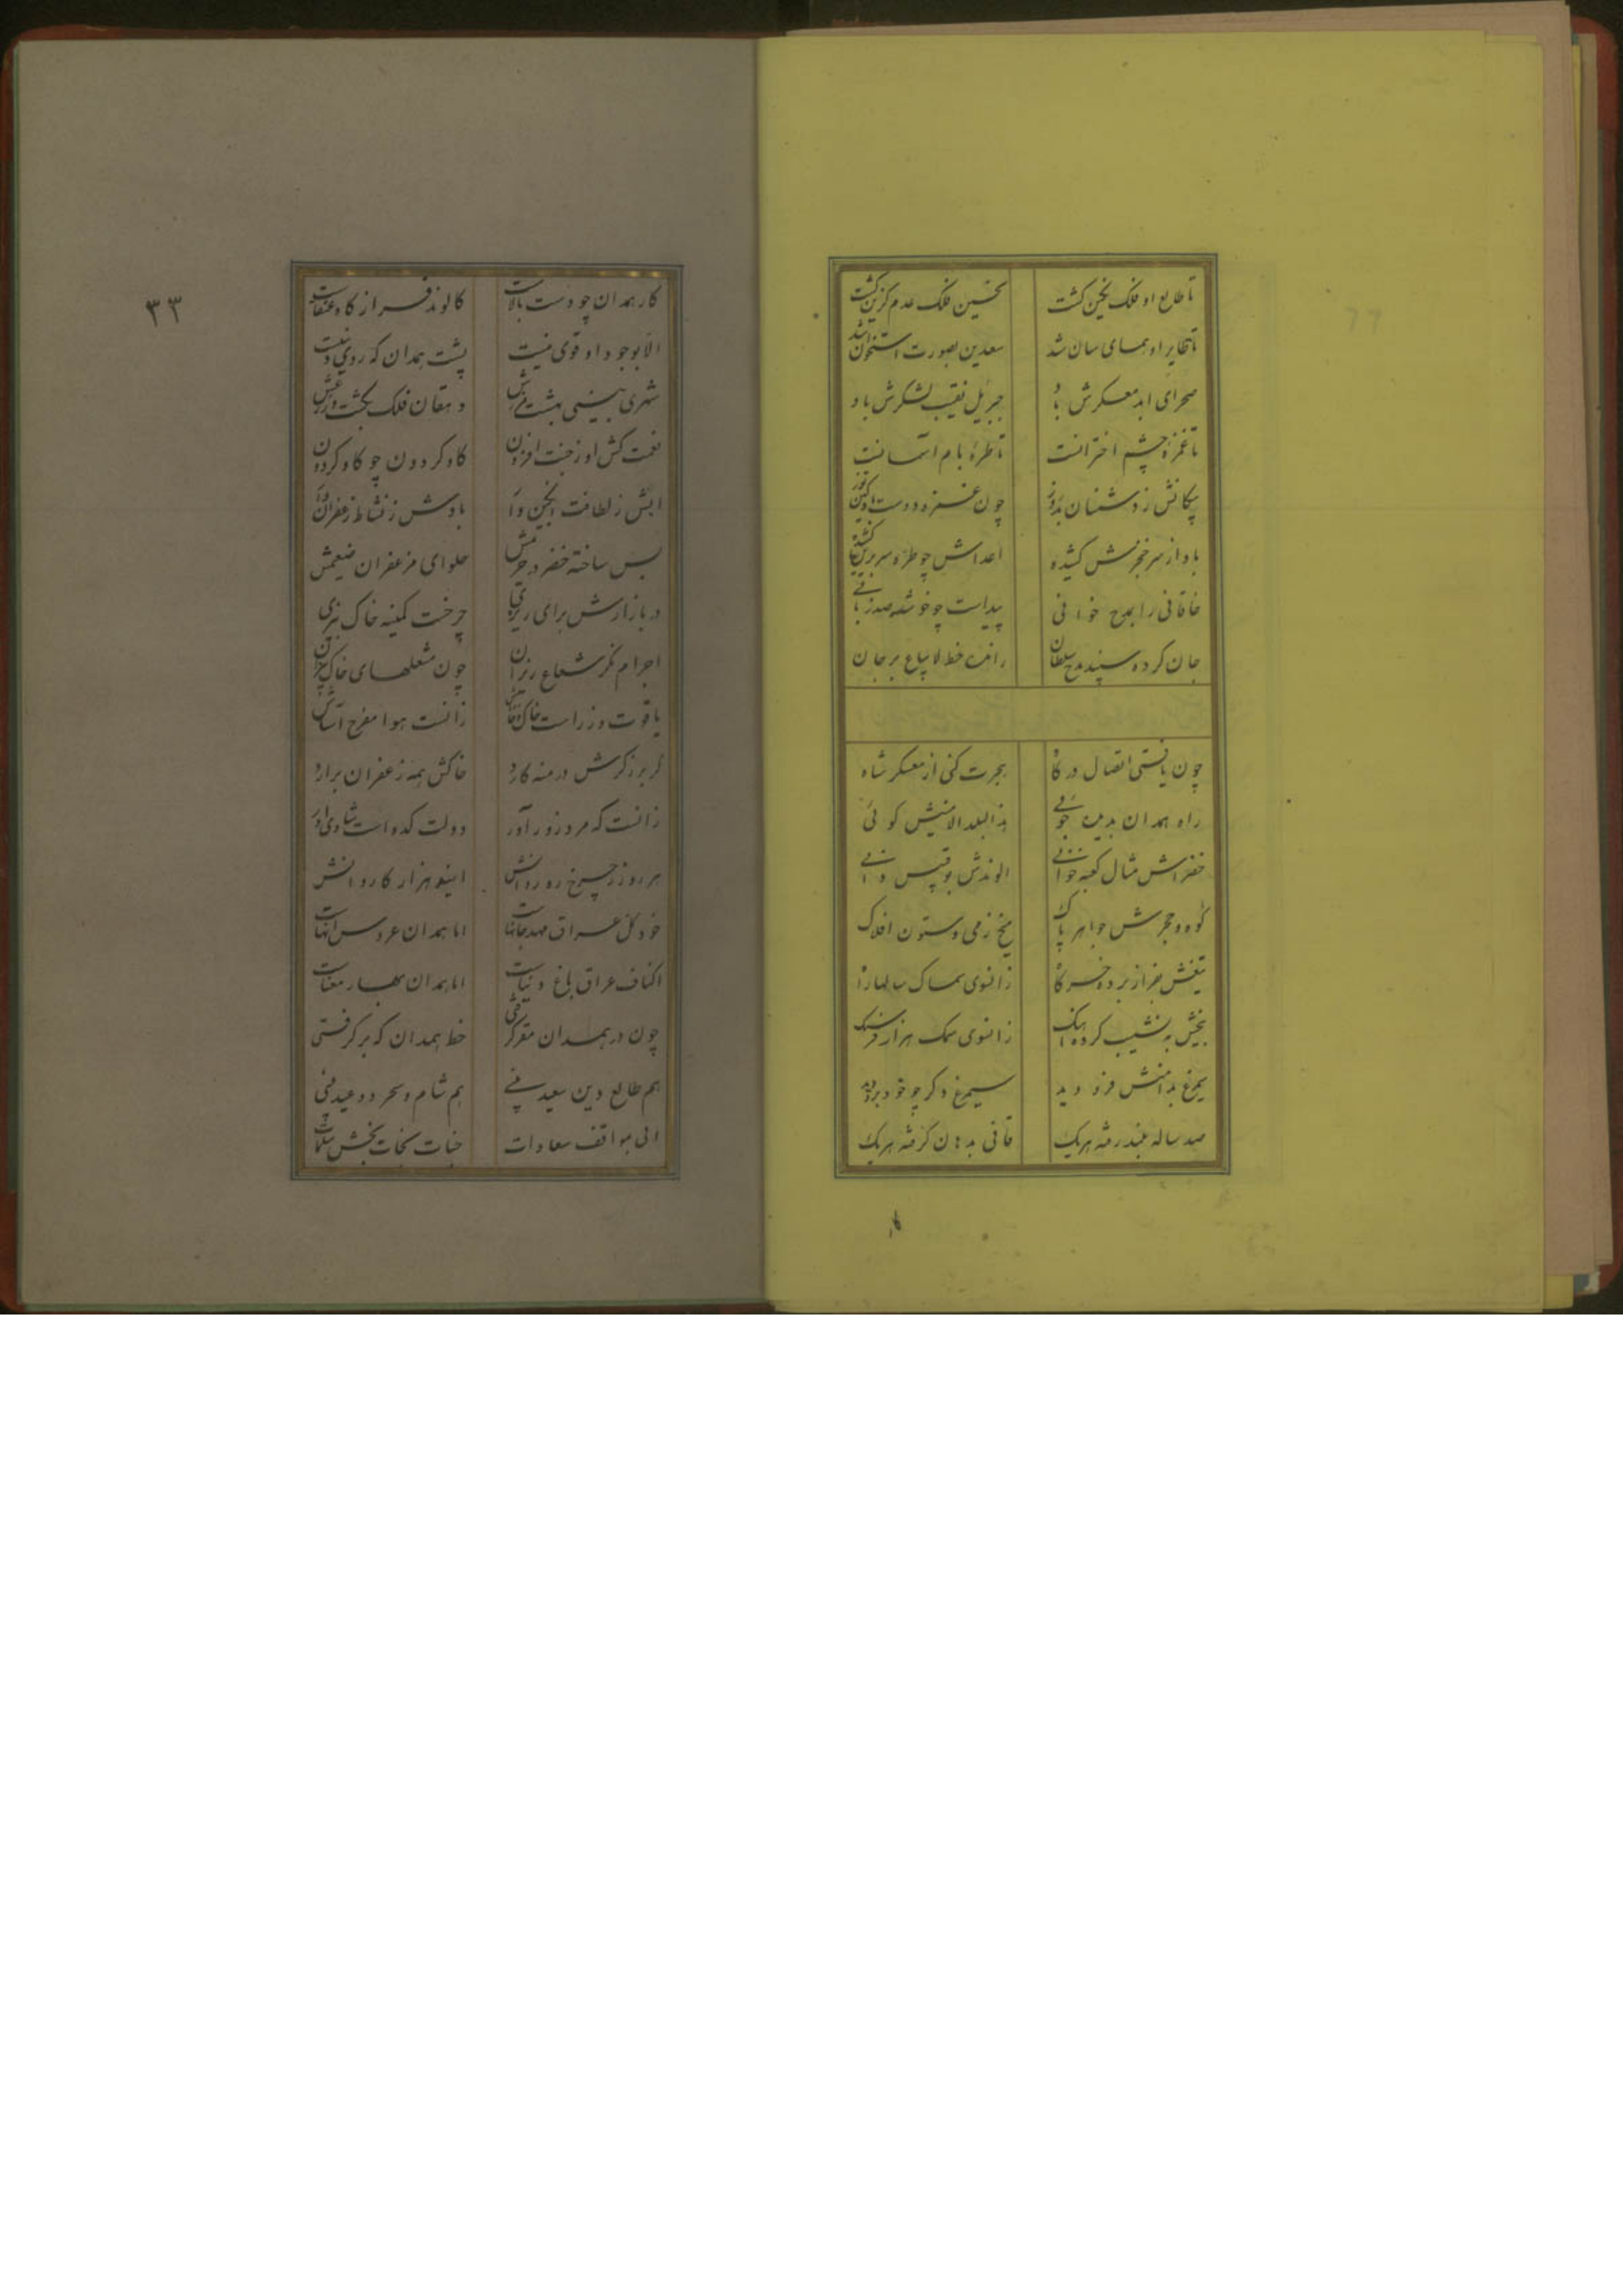 تا طالع او فلک نگین گشت
نحسین فلک عدم گزین گشت
تا طایر او همای سان شد
سعدین بصورت استخوان شد
صحرای ابد معسکرش باد
جبریل نقیب لشکرش باد
تا غمزه چشم اخترانست
تا طرهٔ بام آسمانست
پیکانش ز دشمنان بدوز
چون غمزه دوست
باد از سر خنجرش کشیده
اعداش چو طره سر بریده
خاقانی را بمدح خوانی
پیداست چو خوشه صد زبانی
جان کرده سپند مدح سلطان
رانده خط لا یباع بر جان
چون یافتی اتصال درگاه
هجرت کنی از معسکر شاه
راه همدان بدین جوئی
هذا البلد الامینش کوئی
خضراش مثال کعبه خوانی
الوندش بوقبیس دانی
کوه و حجرش جواهر پاک
میخ زمی و ستون افلاک
تیغش بفراز برده خرگاه
زانسوی سماک سالها راه
بیخش به نشیب کرده آهنگ
زانسوی سمک هزار فرسنگ
سیمرغ بدامنش فرو دید
سیمرغ دگر چو خود برو دید
صد ساله بلند رفته هریک
قافی بدهان گرفته هریک
کار همدان چو دست بالاست
کالوند فراز کاه عنقاست
الا بوجود او قوی نیست
پشت همدان که روی دنییست
شهری بینی بهشت
دهقان فلک بکشت ورزش
نعمت کش او ز جنت افزون
کاو کردون چو کاو کردون
آبش ز لطافت انجبین وار
بادش ز نشاط زعفران وار
بس ساخته خضر در حریمش
حلوای مزعفران ضیعمش
در بازارش برای ریزی
چرخست کمینه خاک بیزی
اجرام نگر شعاع ریزان
چون مشعلهای خاک بیزان
یاقوت و زر است خاک
زانست هوا مفرح آساش
گر برزگرش درمنه کارد
خاکش همه زعفران برآرد
زانست که مرد زور آور
دولت کده است شادی آور
هر روز ز چرخ ره روانش
اینو هزار کاروانش
خود کل عراق مهد جانهاست
اما همدان عروس آنهاست
اکناف عراق باغ دنیاست
اما همدان بهار معناست
چون در همدان مقر گرفتی
خط همدان که بر گرفتی
هم طالع دین سعید بینی
هم شام و سحر دو عید بینی
آئی بمواقف سعادات
جنات نجات بخش
۳۳